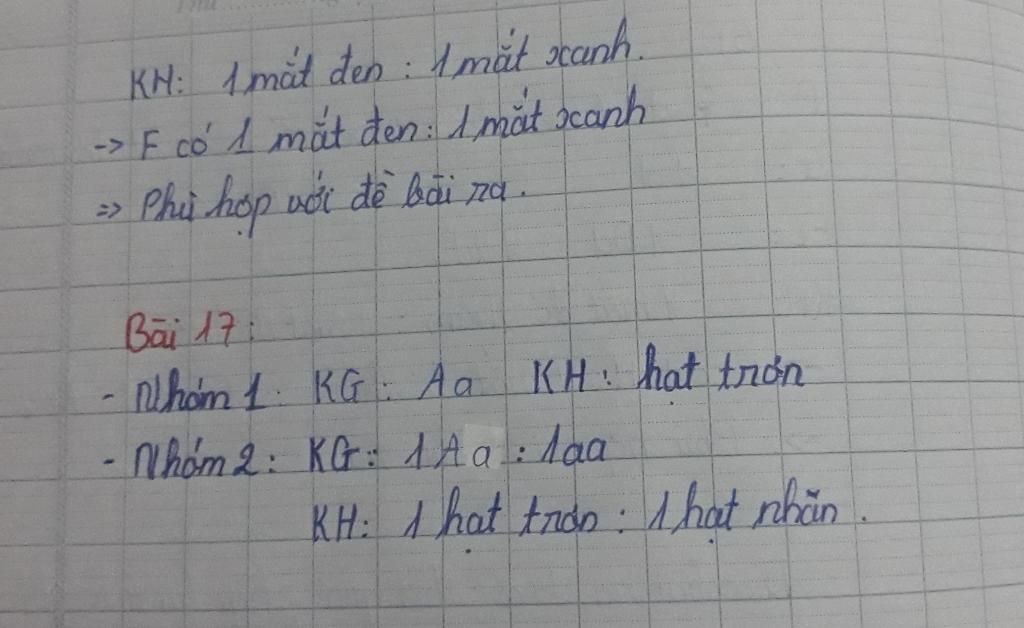 KH: 1 mắt đen : 1 mắt xanh.
-> F có 1 mắt đen : 1 mắt xanh
=> Phù hợp với đề bài ra.
Bài 17:
- Nhóm 1: KG: Aa KH: hạt trơn
- Nhóm 2: KG: 1Aa : 1aa
KH: 1 hạt trơn : 1 hạt nhăn.